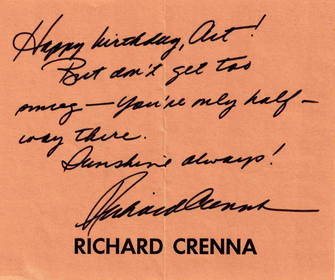 Happy birthday, Art!
But don't get too
smug — You're only half-
way there.
Sunshine always!
Richard Crenna
RICHARD CRENNA